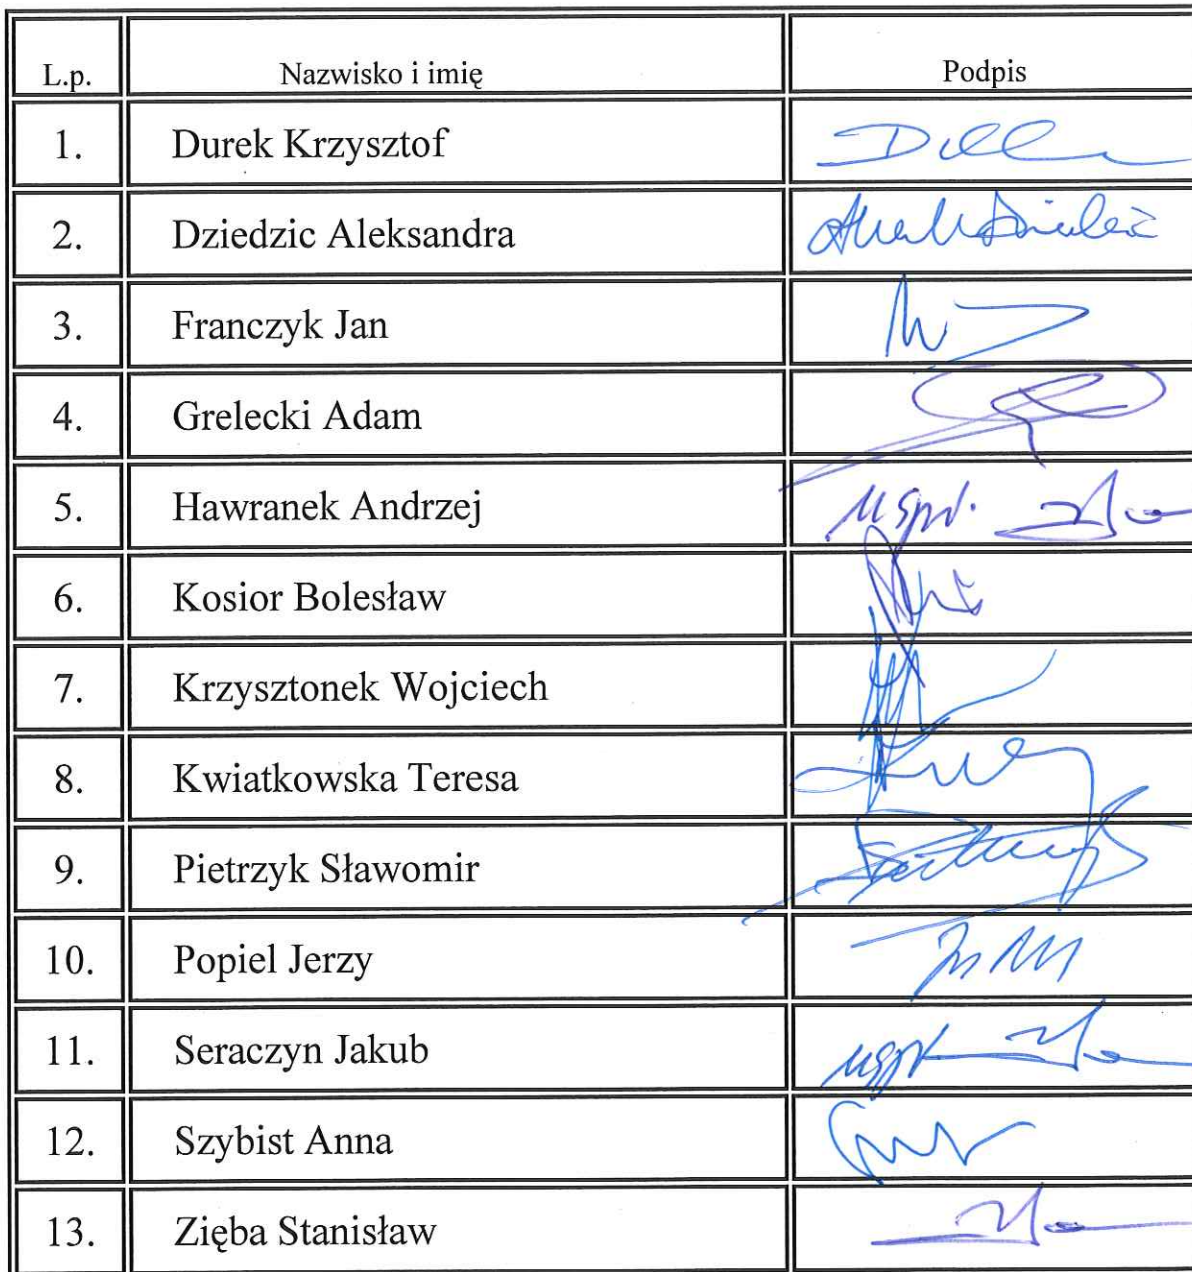 L.p. Nazwisko i imię Podpis
1. Durek Krzysztof
2. Dziedzic Aleksandra
3. Franczyk Jan
4. Grelecki Adam
5. Hawranek Andrzej uspr.
6. Kosior Bolesław
7. Krzysztonek Wojciech
8. Kwiatkowska Teresa
9. Pietrzyk Sławomir
10. Popiel Jerzy
11. Seraczyn Jakub uspr.
12. Szybist Anna
13. Zięba Stanisław